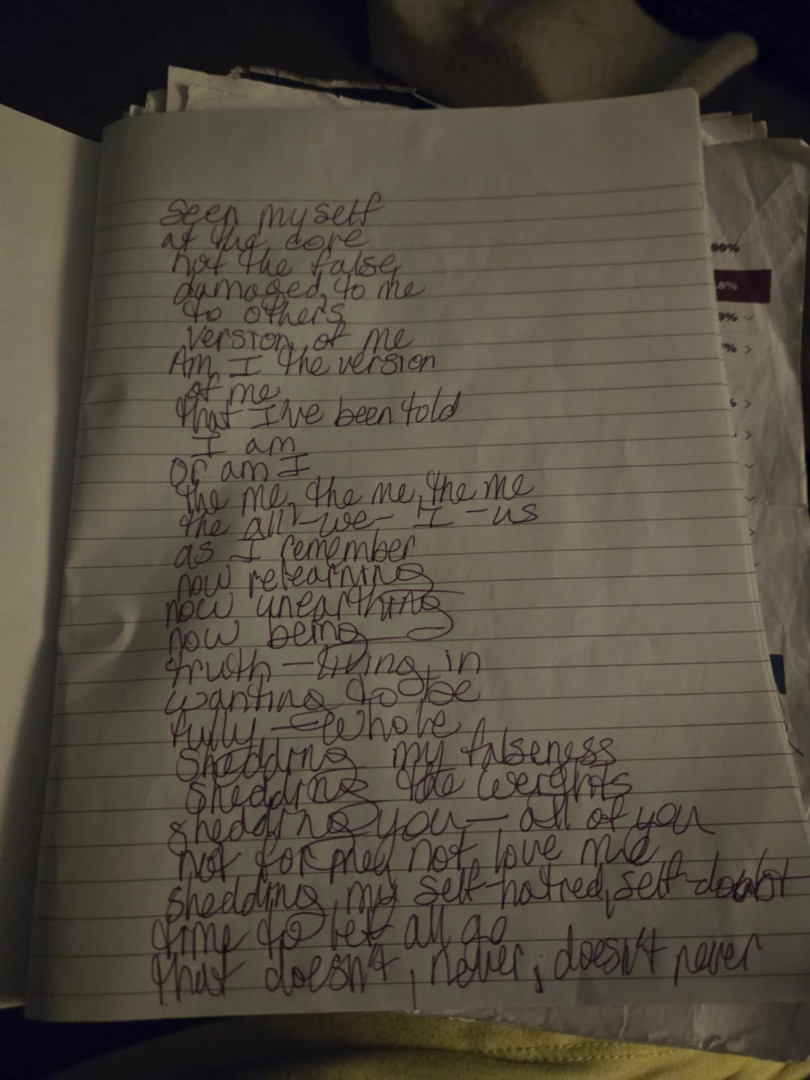 seen myself
at the core
not the false,
damaged, to me
to others
version, of me
Am I the version
of me
that I've been told
I am
Or am I
the me, the me, the me
the all-we-I-us
as I remember
now relearning
now unearthing
now being
truth - living in
wanting to be
fully - whole
shedding my falseness
shedding the weights
shedding you - all of you
not for me, not love me
shedding, my self-hatred, self-doubt
time to let all go
that doesn't, never, doesn't never
90%
8%
9%
%